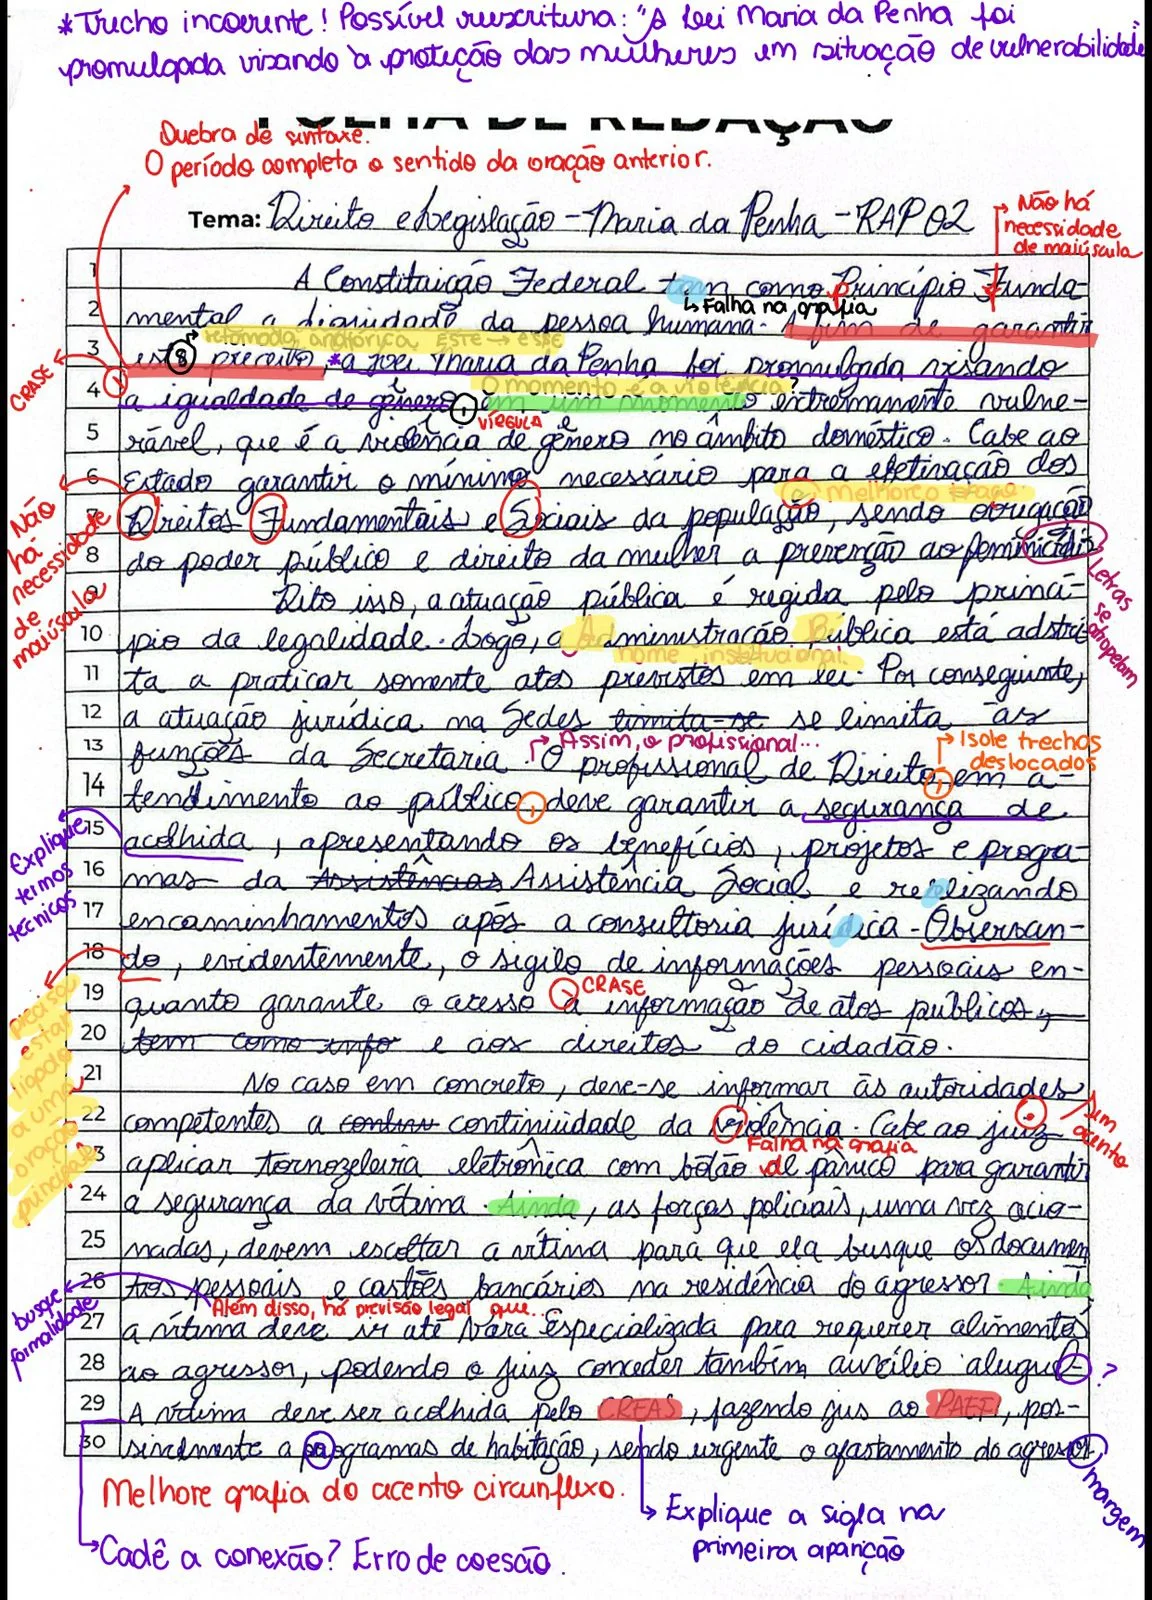 *Trecho incoerente! Possível reescritura: "A Lei Maria da Penha foi
promulgada visando à proteção das mulheres em situação de vulnerabilidade
FOLHA DE REDAÇÃO
Quebra de sintaxe.
O período completa o sentido da oração anterior.
Tema: Direito e Legislação - Maria da Penha - RAP 02
Não há
necessidade
de maiúscula
1 A Constituição Federal tem como Princípio Funda-
↳ Falha na grafia
2 mental a dignidade da pessoa humana. A fim de garantir
retomada anafórica este → esse
3 este preceito *a Lei Maria da Penha foi promulgada visando
CRASE
O momento é a violência?
4 a igualdade de gênero, em um momento extremamente vulne-
VÍRGULA
5 rável, que é a violência de gênero no âmbito doméstico. Cabe ao
6 Estado garantir o mínimo necessário para a efetivação dos
Melhore o traço.
7 Direitos Fundamentais e Sociais da população, sendo obrigação
Não
há
necessidade
de
maiúscula
8 do poder público e direito da mulher a prevenção ao feminicídio
Letras
se
atropelam
9 Dito isso, a atuação pública é regida pelo princí-
10 pio da legalidade. Logo, a Administração Pública está adstri-
nome institucional.
11 ta a praticar somente atos previstos em lei. Por conseguinte,
12 a atuação jurídica na Sedes limita-se se limita às
Assim, o profissional...
Isole trechos
deslocados
13 funções da Secretaria. O profissional de Direito, em a-
14 tendimento ao público, deve garantir a segurança de
Explique
termos
técnicos
15 acolhida, apresentando os benefícios, projetos e progra-
16 mas da Assistências Assistência Social e realizando
17 encaminhamentos após a consultoria jurídica. Observan-
18 do, evidentemente, o sigilo de informações pessoais en-
CRASE
19 quanto garante o acesso à informação de atos públicos,
20 tem como info e aos direitos do cidadão.
precisa
estar
ligado
a uma
oração
principal
21 No caso em concreto, deve-se informar às autoridades
22 competentes a continu continuidade da violência. Cabe ao juiz
sem
acento
Falha na grafia
23 aplicar tornozeleira eletrônica com botão de pânico para garantir
24 a segurança da vítima. Ainda, as forças policiais, uma vez acio-
25 nadas, devem escoltar a vítima para que ela busque os documen
26 tos pessoais e cartões bancários na residência do agressor. Ainda
busque
formalidade
Além disso, há previsão legal que...
27 a vítima deve ir até Vara Especializada para requerer alimentos
28 ao agressor, podendo o juiz conceder também auxílio aluguel- ?
29 A vítima deve ser acolhida pelo CREAS, fazendo jus ao PAEFI, pos-
30 sivelmente a programas de habitação, sendo urgente o afastamento do agressor.
margem
Melhore grafia do acento circunflexo.
↳ Explique a sigla na
primeira aparição
Cadê a conexão? Erro de coesão.